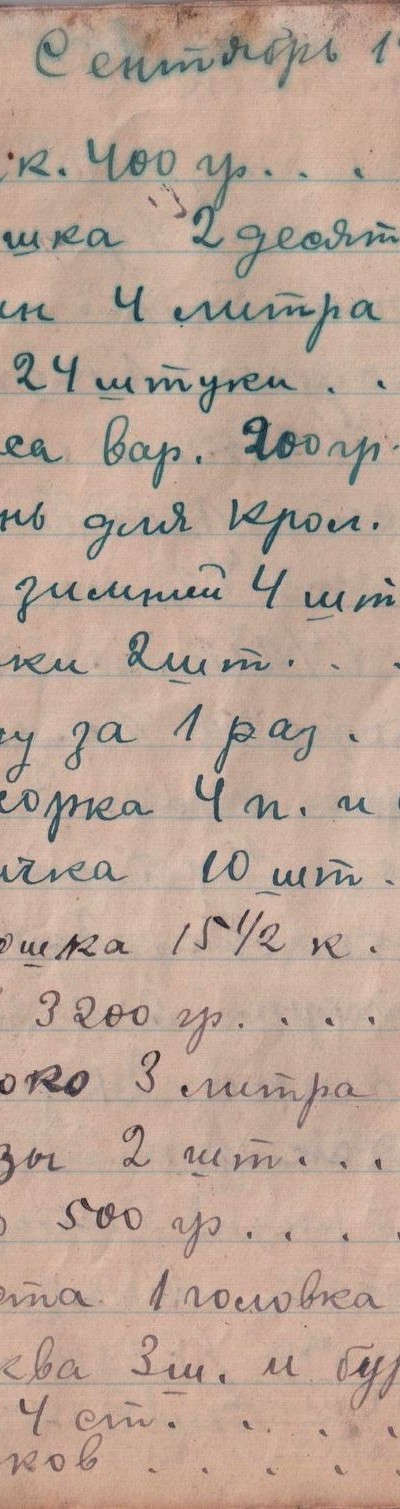 Сентябрь 1
к. 400 гр. . .
шка 2 десят
ин 4 литра
24 штуки . .
са вар. 200 гр.
нь для крол.
зимний 4 шт
ки 2 шт. . .
ну за 1 раз .
корка 4 п. и
ичка 10 шт.
ошка 15 1/2 к.
3200 гр. . . .
око 3 литра
зы 2 шт. . .
500 гр . . . .
ста 1 головка
ква 3 ш. и бур
4 ст. . . .
ков . . . .